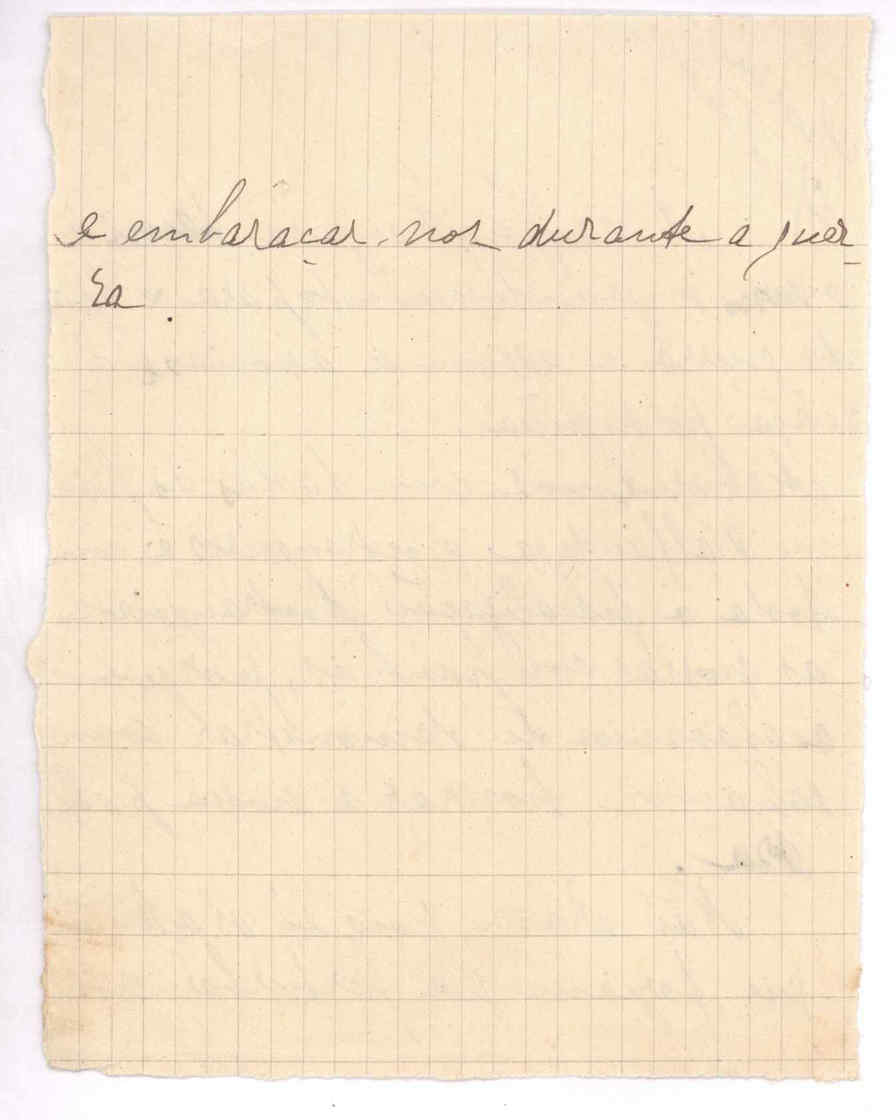 e embaraçar-nos durante a guer-
ra.